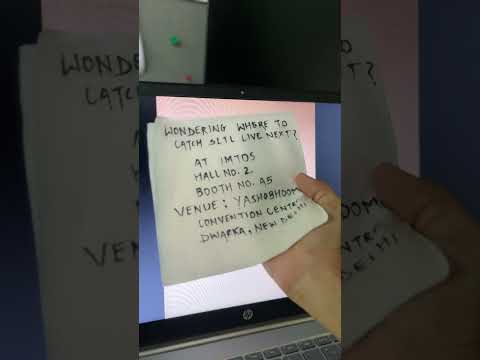 WONDERING WHERE TO
CATCH SLTL LIVE NEXT?
AT IMTOS
HALL NO. 2
BOOTH NO. A5
VENUE: YASHOBHOOMI
CONVENTION CENTRE
DWARKA, NEW DELHI